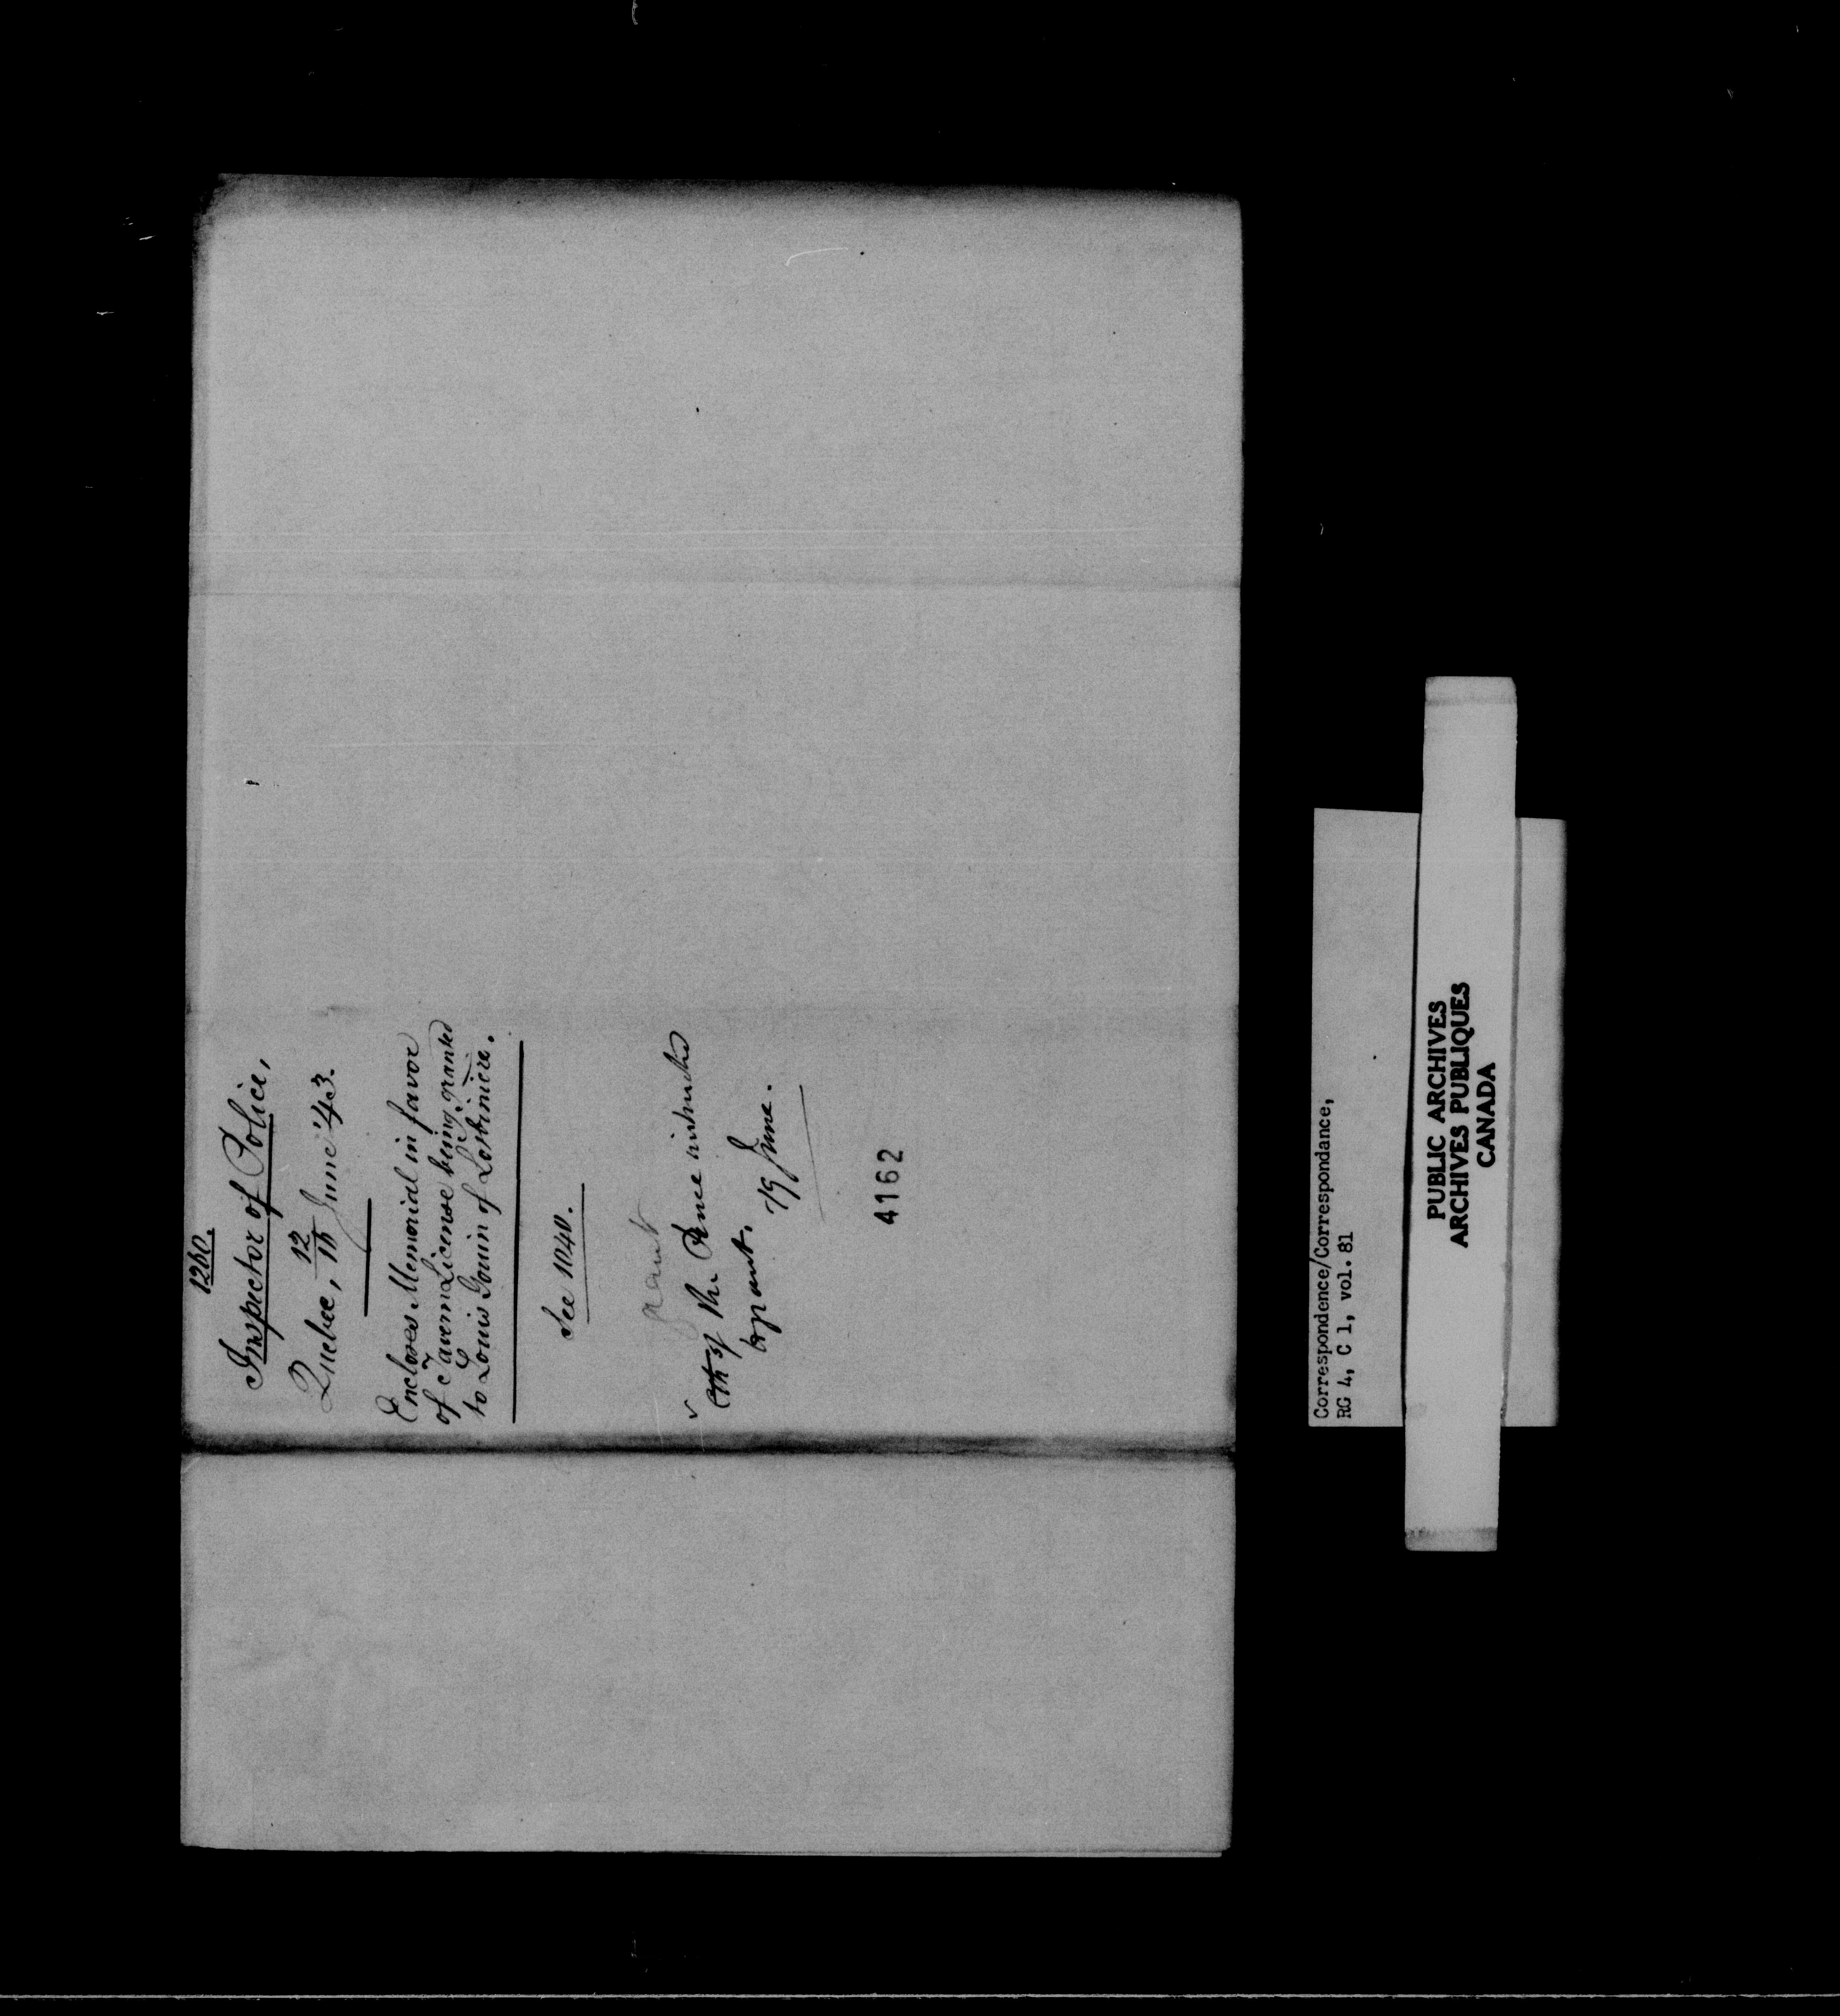 1260.
Inspector of Police,
Quebec, 12/15 June '43.
Encloses Memorial in favor
of Tavern License being granted
to Louis Gouin of Lotbiniere.
See 1040.
grant
of the Peace
to grant.
19 June.
4162
Correspondence/Correspondance,
RG 4, C 1, vol. 81
PUBLIC ARCHIVES
ARCHIVES PUBLIQUES
CANADA